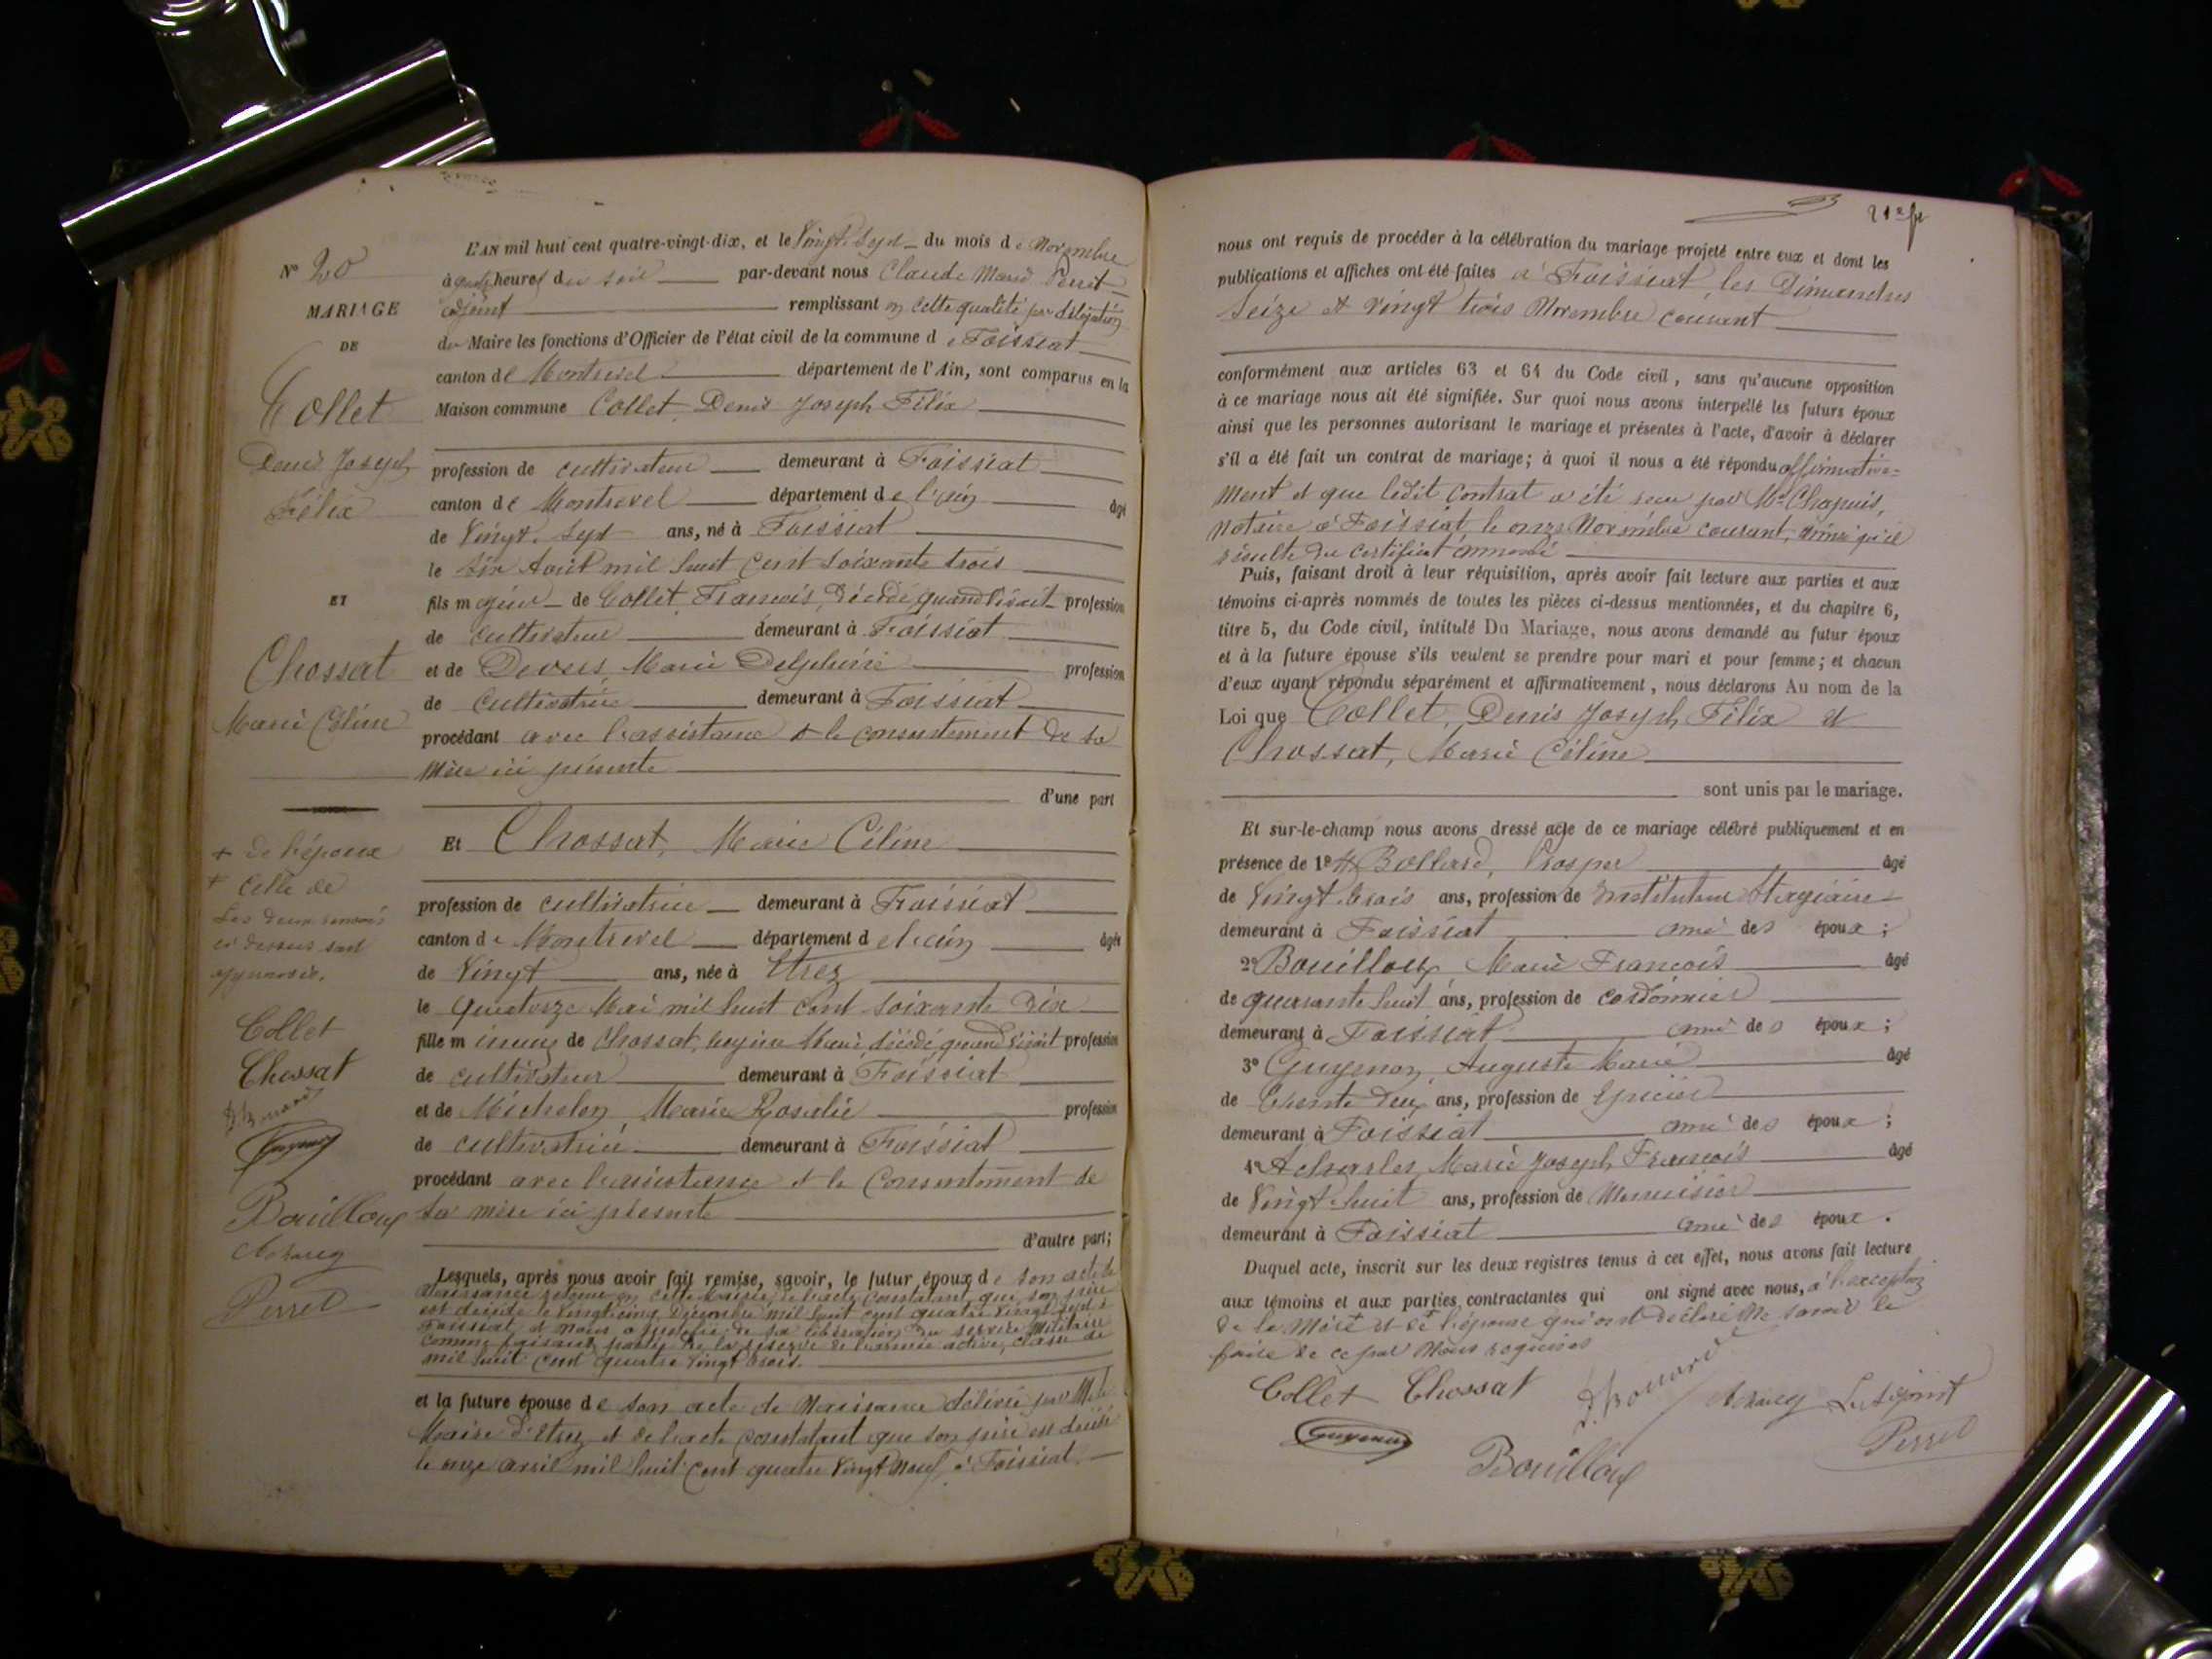 N° 20
MARIAGE
DE
Collet
Denis Joseph
Félix
ET
Chossat
Marie Céline
+ de l'époux
+ Celle de
Les deux renvois
ci dessus sont
approuvés.
Collet
Chossat
Bouilloux
Perret
L'AN mil huit cent quatre-vingt-dix, et le Vingt Sept du mois de Novembre
à quatre heures du soir par-devant nous Claude Marie Perret
adjoint remplissant en cette qualité par délégation
du Maire les fonctions d'Officier de l'état civil de la commune de Foissiat
canton de Montrevel département de l'Ain, sont comparus en la
Maison commune Collet Denis Joseph Félix
profession de cultivateur demeurant à Foissiat
canton de Montrevel département de l'ain âgé
de Vingt Sept ans, né à Foissiat
le Six Août mil huit cent soixante trois
fils majeur de Collet, François, décédé, quand vivait profession
de cultivateur demeurant à Foissiat
et de Devers, Marie Delphine profession
de cultivatrice demeurant à Foissiat
procédant avec l'assistance & le consentement de sa
Mère ici présente
d'une part
Et Chossat, Marie Céline
profession de cultivatrice demeurant à Foissiat
canton de Montrevel département de l'ain âgée
de Vingt ans, née à Etrez
le quatorze Mai mil huit cent soixante Dix
fille mineure de Chossat, Marie, décédé, quand vivait profession
de cultivateur demeurant à Foissiat
et de Michelon, Marie Rosalie profession
de cultivatrice demeurant à Foissiat
procédant avec l'assistance et le Consentement de
sa mère ici présente
d'autre part;
Lesquels, après nous avoir fait remise, savoir, le futur époux de son acte de
Naissance retenu en cette Mairie, de l'acte constatant que son père
est décédé le Vingt cinq Décembre mil huit cent quatre Vingt Sept à
Foissiat et nous a justifié de sa libération du service Militaire
comme faisant partie de la réserve de l'armée active, classe de
mil huit cent quatre Vingt trois.
et la future épouse de son acte de Naissance délivré par M. le
Maire d'Etrez et de l'acte constatant que son père est décédé
le onze avril mil huit cent quatre Vingt Neuf, à Foissiat.
nous ont requis de procéder à la célébration du mariage projeté entre eux et dont les
publications et affiches ont été faites à Foissiat, les Dimanches
Seize et Vingt trois Novembre courant
conformément aux articles 63 et 64 du Code civil, sans qu'aucune opposition
à ce mariage nous ait été signifiée. Sur quoi nous avons interpellé les futurs époux
ainsi que les personnes autorisant le mariage et présentes à l'acte, d'avoir à déclarer
s'il a été fait un contrat de mariage; à quoi il nous a été répondu affirmative=
ment et que ledit Contrat a été reçu par Me Chapuis,
Notaire à Foissiat, le onze Novembre courant, ainsi qu'il
résulte du certificat annexé
Puis, faisant droit à leur réquisition, après avoir fait lecture aux parties et aux
témoins ci-après nommés de toutes les pièces ci-dessus mentionnées, et du chapitre 6,
titre 5, du Code civil, intitulé Du Mariage, nous avons demandé au futur époux
et à la future épouse s'ils veulent se prendre pour mari et pour femme; et chacun
d'eux ayant répondu séparément et affirmativement, nous déclarons Au nom de la
Loi que Collet, Denis Joseph Félix et
Chossat, Marie Céline
sont unis par le mariage.
Et sur-le-champ nous avons dressé acte de ce mariage célébré publiquement et en
présence de 1° Prosper âgé
de Vingt trois ans, profession de Instituteur Stagiaire
demeurant à Foissiat ami des époux;
2° Bouilloux Marie François âgé
de quarante huit ans, profession de cordonnier
demeurant à Foissiat ami des époux;
3° Guyenon, Auguste Marie âgé
de Trente Deux ans, profession de Epicier
demeurant à Foissiat ami des époux;
4° Marie Joseph François âgé
de Vingt huit ans, profession de Menuisier
demeurant à Foissiat ami des époux.
Duquel acte, inscrit sur les deux registres tenus à cet effet, nous avons fait lecture
aux témoins et aux parties contractantes qui ont signé avec nous, à l'exception
de la Mère et de l'épouse qui ont déclaré Ne savoir le
faire de ce par Nous requises
Collet Chossat L'adjoint
Bouilloux Perret